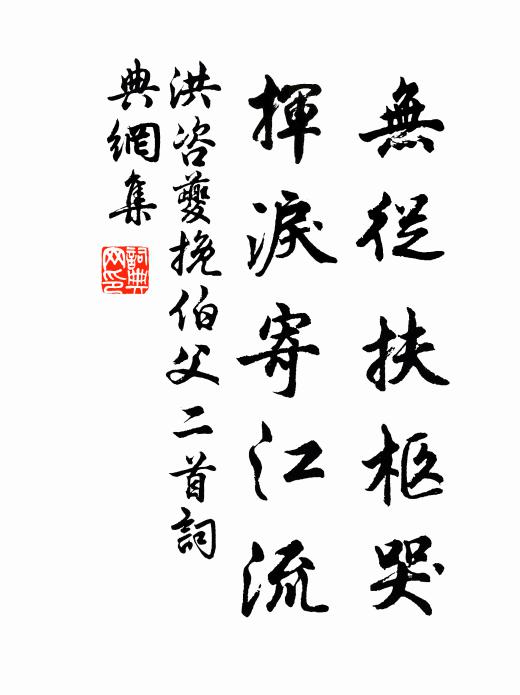 無從扶柩哭
揮淚寄江流
洪咨夔挽伯父二首詞
典網集
詞典
网印